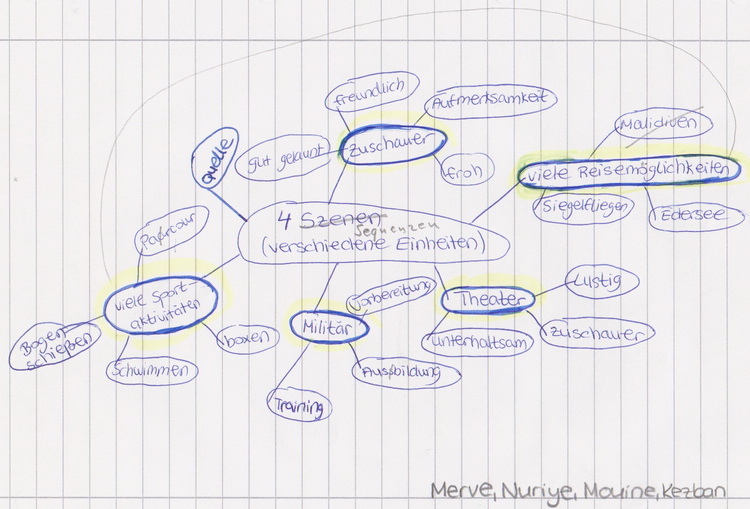 freundlich
Aufmerksamkeit
Zuschauer
gut gelaunt
froh
Quelle
Malidiven
viele Reisemöglichkeiten
Siegelfliegen
Edersee
4 Szenen
Sequenzen
(verschiedene Einheiten)
Parkour
viele Sport-
aktivitäten
Bogen
schießen
Schwimmen
boxen
Militär
Vorbereitung
Ausbildung
Training
Theater
Lustig
Zuschauer
unterhaltsam
Merve, Nuriye, Mouine, Kezban